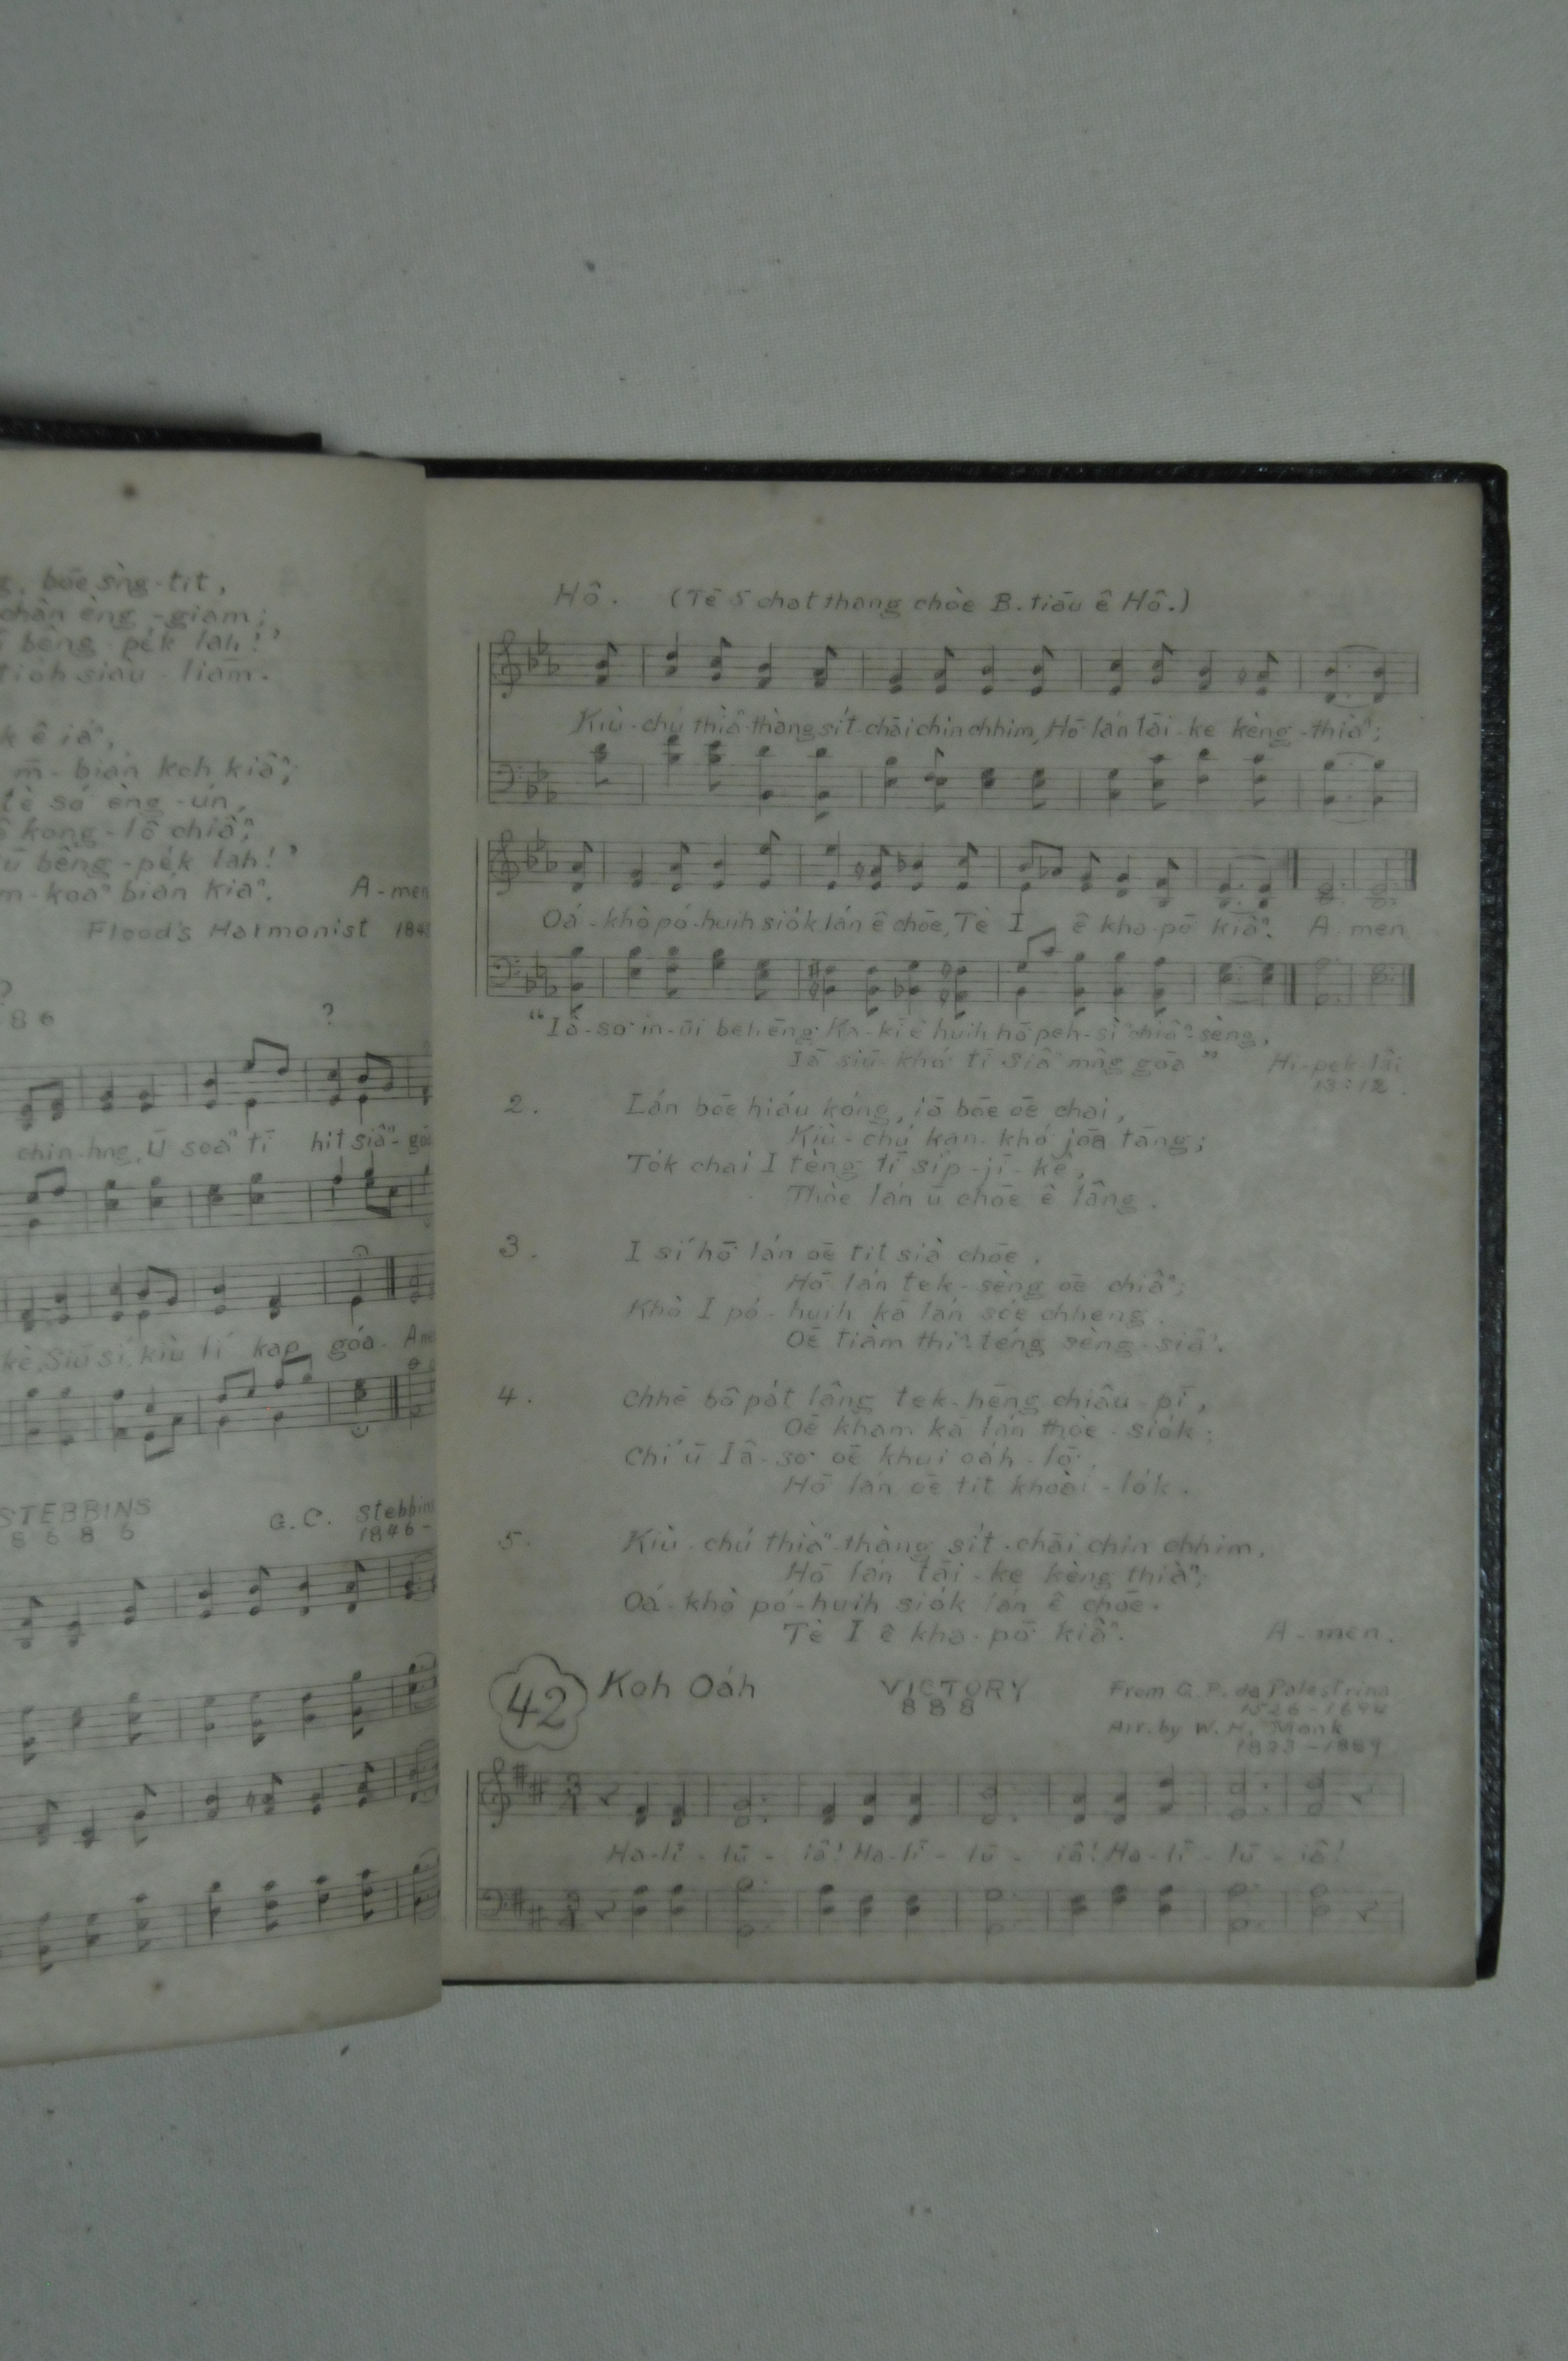 bōe sǹg-tit,
chân èng-giam;
bêng-pe̍k lah!’
tio̍h siàu-liām.
k ê iáⁿ,
m̄-bián koh kiâⁿ;
tè só͘ èng-ún,
kong-lō chiâⁿ;
ū bêng-pe̍k lah!’
m-koaⁿ bián kiaⁿ. A-men
Flood's Harmonist 184
?
8 6 ?
chin hn̄g, Ū soaⁿ tī hit siâⁿ-gōa
kè, Siū sí, kiù lí kap góa. Ame
STEBBINS G. C. Stebbins
8 6 8 6 1846-
Hô. (Tē 5 chat thang chòe B. tiāu ê Hô.)
Kiù-chú thiàⁿ-thàng si̍t-chāi chin chhim, Hō͘ lán tāi-ke kèng-thiàⁿ;
Oá-khò pó-huih sio̍k lán ê chōe, Tè I ê kha-pō͘ kiâⁿ. A-men
“Iâ-so͘ in-ūi beh ēng Ka-kī ê huih hō͘ peh-sìⁿ chiâⁿ-sèng,
Iā siū-khó͘ tī siâⁿ mn̂g gōa” Hi-pek-lâi
13:12.
2. Lán bōe hiáu kóng, iā bōe oē chai,
Kiù-chú kan-khó͘ jōa tāng;
To̍k chai I tèng tī si̍p-jī-kè,
Thòe lán ū chōe ê lâng.
3. I sí hō͘ lán oē tit sià chōe.
Hō͘ lán tek-sèng oē chiâⁿ;
Khò I pó-huih kā lán sóe chheng.
Oē tiàm thiⁿ-téng sèng-siâⁿ.
4. Chhē bô pa̍t lâng tek-hēng chiâu-pī,
Oē kham kā lán thòe-sio̍k;
Chí ū Iâ-so͘ oē khui oa̍h-lō͘,
Hō͘ lán oē tit khoài-lo̍k.
5. Kiù-chú thiàⁿ-thàng si̍t-chāi chin chhim,
Hō͘ lán tāi-ke kèng thiàⁿ;
Oá-khò pó-huih sio̍k lán ê chōe.
Tè I ê kha-pō͘ kiâⁿ. A-men.
42 Koh Oa̍h VICTORY From G. P. da Palestrina
8 8 8 1526-1694
Arr. by W. H. Monk
1823-1889
Ha-lī-lū-iâ! Ha-lī-lū-iâ! Ha-lī-lū-iâ!